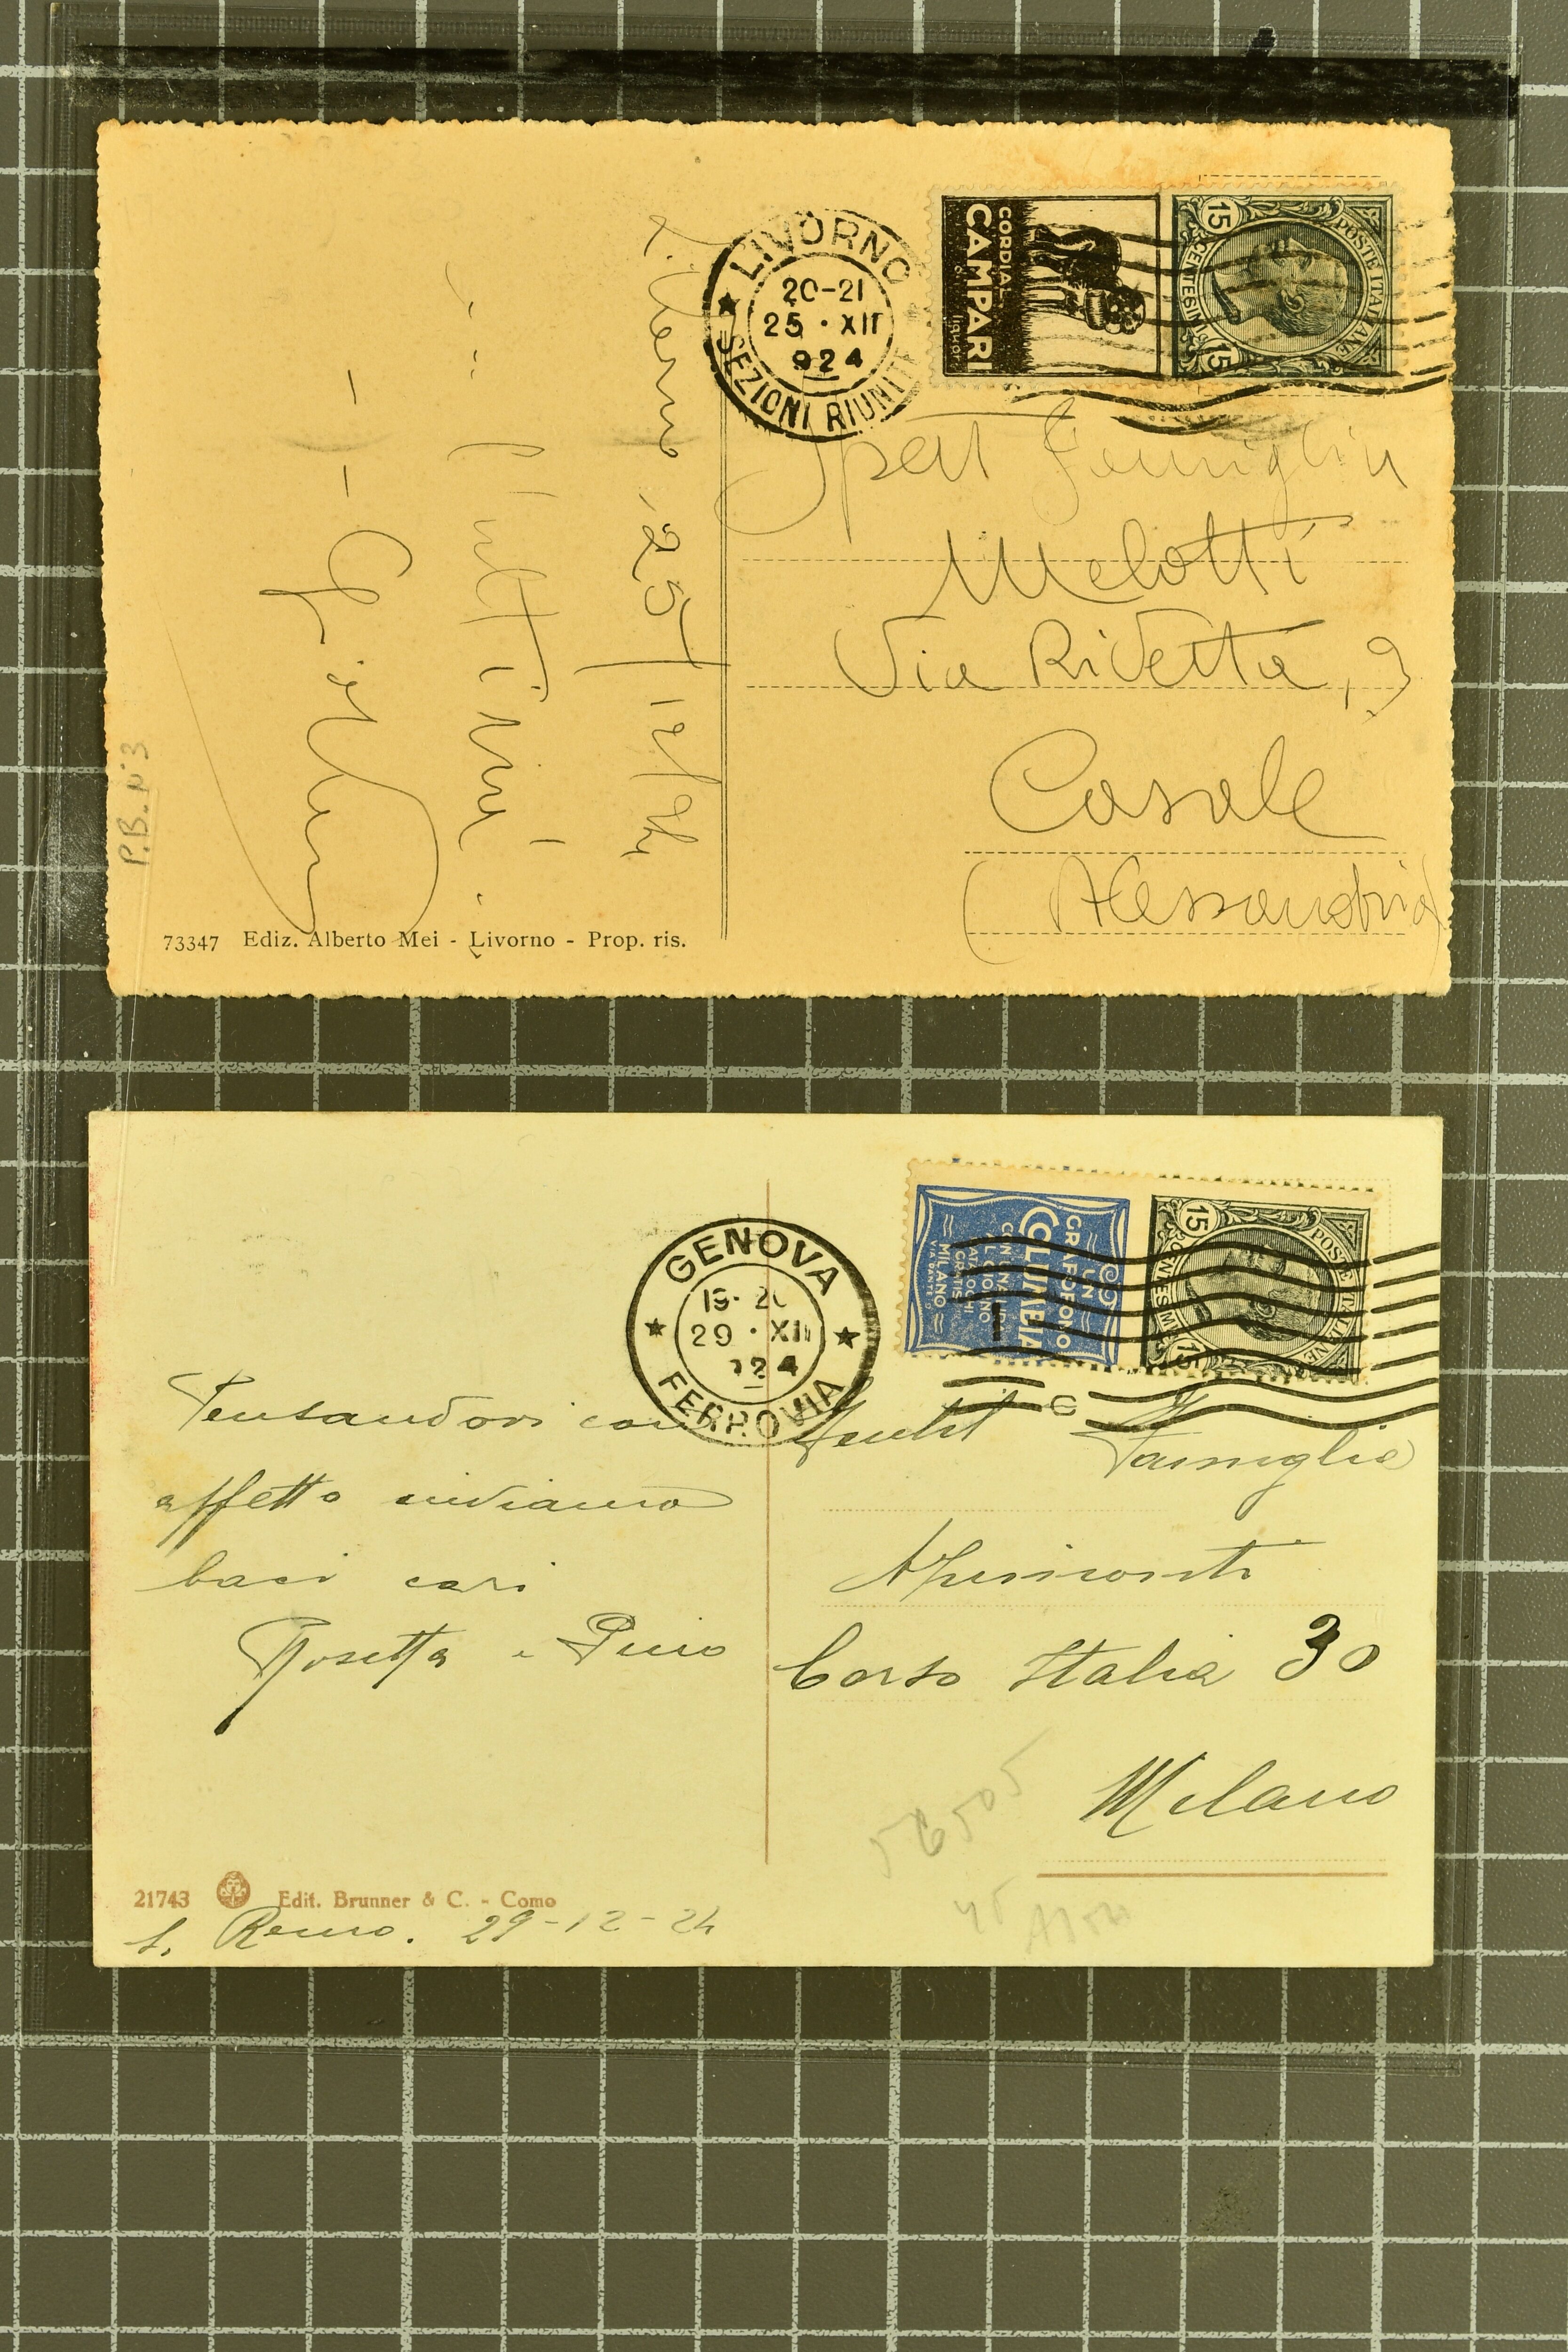 LIVORNO
20-21
25 · XII
924
SEZIONI RIUNITE
CORDIAL
CAMPARI
liquor
POSTE ITALIANE
15 CENTESIMI 15
Livorno, 25/12/24
Spett Famiglia
Melotti
Via Rivetta, 9
Casale
(Alessandria)
P.B. N°3
73347 Ediz. Alberto Mei - Livorno - Prop. ris.
GENOVA
19-20
29 · XII
924
FERROVIA
UN
GRAFOFONO
COLUMBIA
CATALOGHI
GRATIS
MILANO
VIA DANTE 9
POSTE ITALIANE
15 CENTESIMI 15
Pensandovi con
affetto inviamo
baci cari
Rosetta e Pino
Gentil Famiglia
Corso Italia 30
Milano
56505
21743 Edit. Brunner & C. - Como
S. Remo. 29-12-24